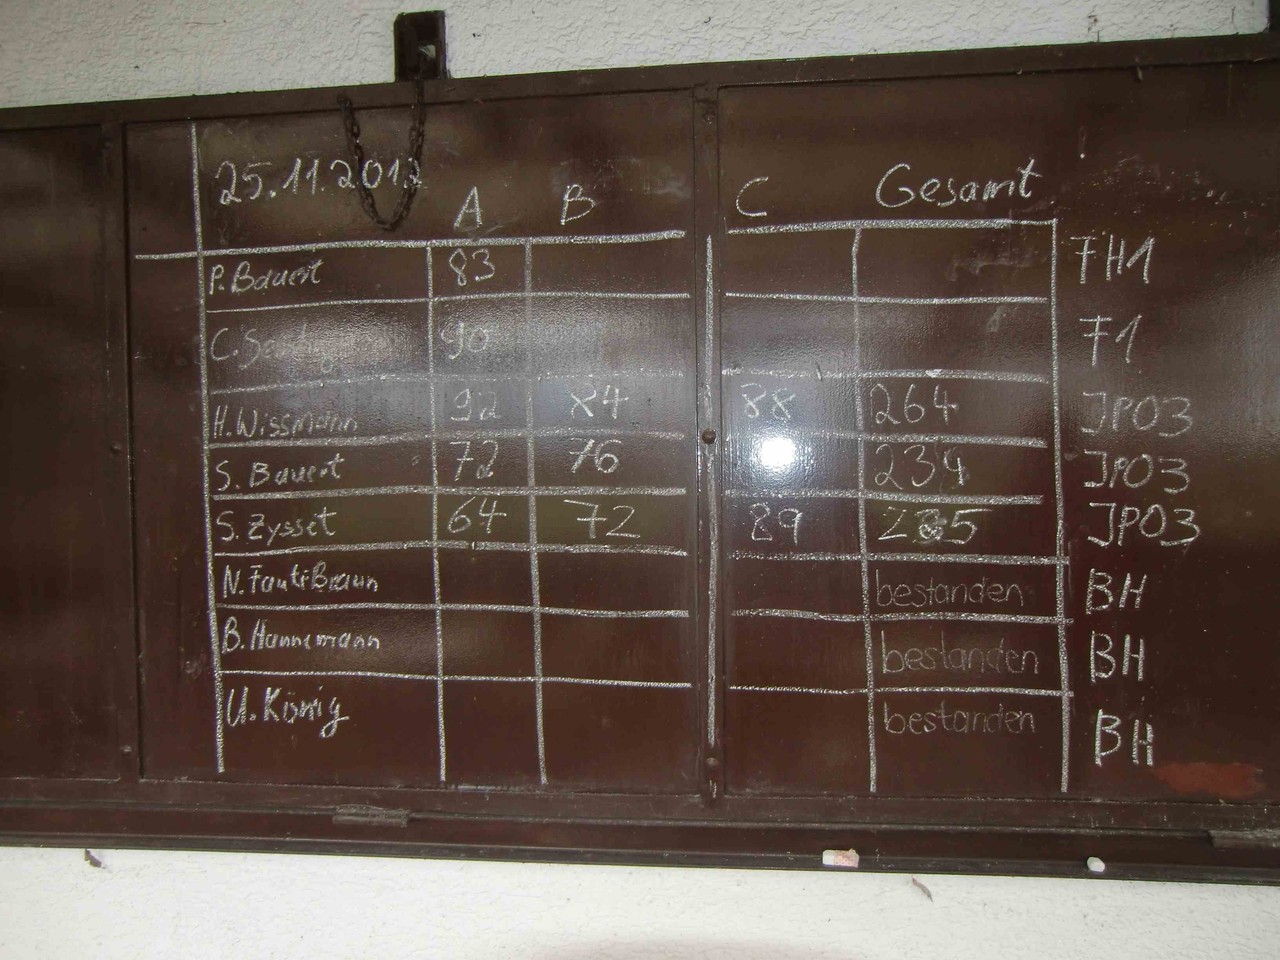 25.11.2012
A B C Gesamt
P. Bauert 83 FH1
C. 90 F1
H. Wissmann 92 84 88 264 JPO3
S. Bauert 72 76 239 JPO3
S. Zysset 64 72 89 225 JPO3
N. FantiBraun bestanden BH
B. Hannemann bestanden BH
U. König bestanden BH